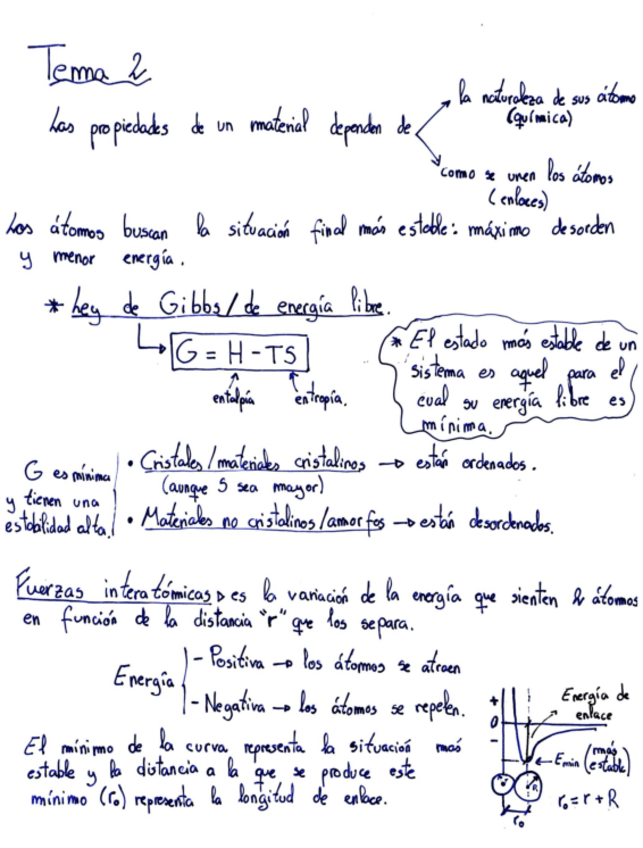 Tema 2
Las propiedades de un material dependen de
la naturaleza de sus átomo
(química)
como se unen los átomos
(enlaces)
Los átomos buscan la situación final más estable: máximo desorden
y menor energía.
* Ley de Gibbs/de energía libre.
G = H - TS
entalpía
entropía.
* El estado más estable de un
sistema es aquel para el
cual su energía libre es
mínima.
G es mínima
y tienen una
estabilidad alta.
• Cristales/materiales cristalinos → están ordenados.
(aunque S sea mayor)
• Materiales no cristalinos/amorfos → están desordenados.
Fuerzas interatómicas es la variación de la energía que sienten 2 átomos
en función de la distancia "r" que los separa.
Energía
- Positiva → los átomos se atraen
- Negativa → los átomos se repelen.
El mínimo de la curva representa la situación más
estable y la distancia a la que se produce este
mínimo (r₀) representa la longitud de enlace.
+
0
-
Energía de
enlace
Emin (más
estable)
r
R
r₀
r₀ = r + R